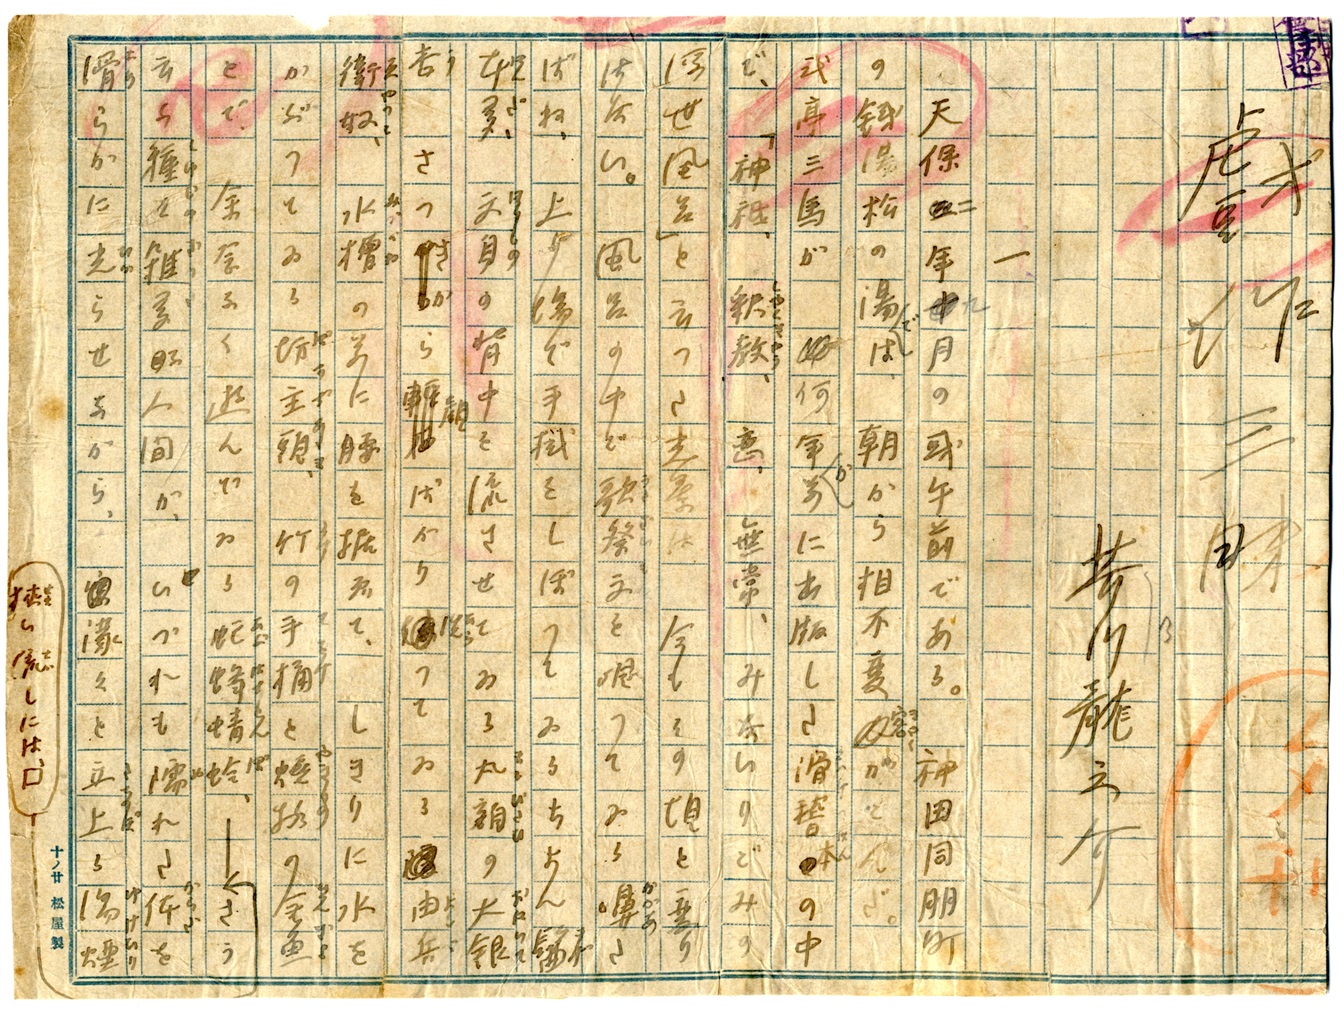 戯作三昧
芥川龍之介
一
天保二年九月の或午前である。神田同朋町
の銭湯松の湯では、朝から相不変客が
式亭三馬が何年か前に出版した滑稽本の中
で、「神祇、釈教、恋、無常、みないりごみの
浮世風呂」と云つた光景は今もその頃と変り
はない。風呂の中で歌祭文を唄つてゐる嚊た
ばね、上り場で手拭をしぼつてゐるちよん髷
本多、文身の背中を流させてゐる丸額の大銀
杏、さつきから顔ばかり洗つてゐる由兵
衛奴、水槽の前に腰を据ゑて、しきりに水を
かぶつてゐる坊主頭、竹の手桶と焼物の金魚
とで、余念なく遊んでゐる虻蜂蜻蛉、―さう
云ふ種々雑多な人間が、いづれも濡れた体を
滑らかに光らせながら、濛々と立上る湯煙
狭い流しには、
十ノ廿 松屋製